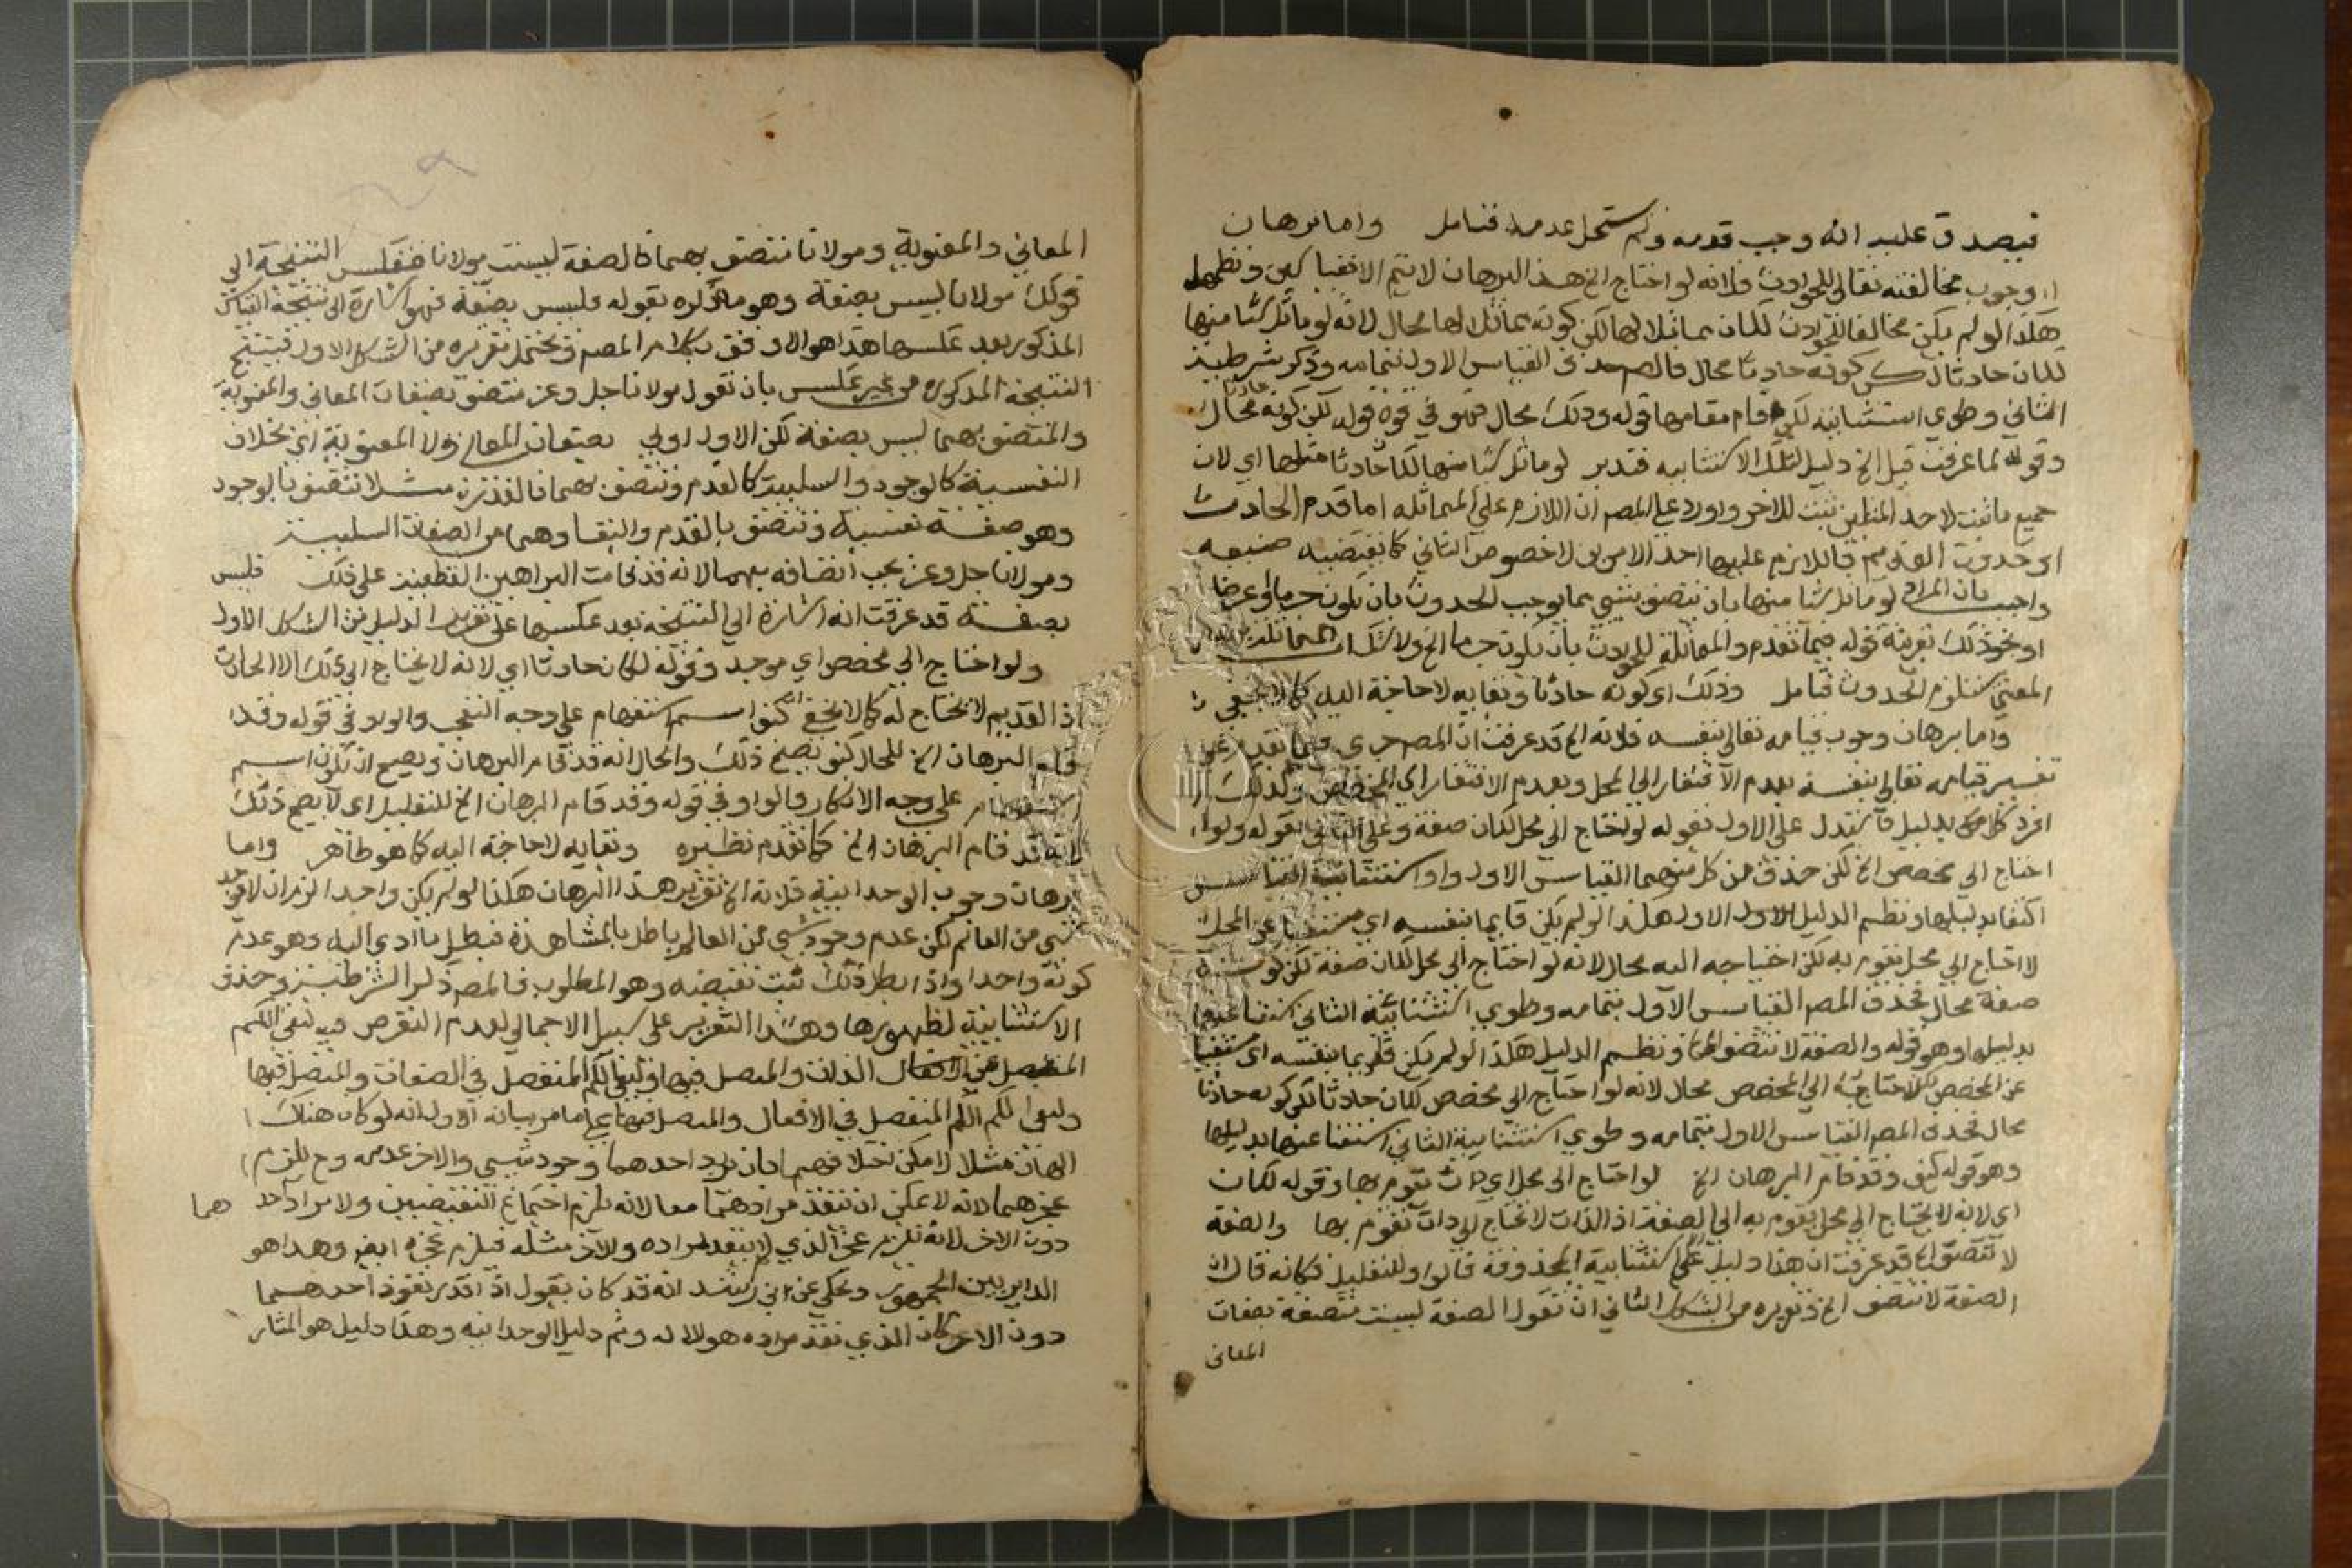 فيصدق عليه انه وجب قدمه ولم يستحل عدمه فتامل واما برهان
وجوب مخالفته تعالى للحوادث فلانه لو احتاج الخ هذا البرهان لا يتم الا بقياسين ونظمهما
هكذا لو لم يكن مخالفا للحوادث لكان مماثلا لها لكن كونه مماثلا لها محال لانه لو ماثل شيا منها
لكان حادثا لكن كونه حادثا محال فالمص حذف القياس الاول بتمامه وذكر شرطية
الثاني وطوي استثنائيته لكن اقام مقامها قوله وذلك محال فهو في قوة قوله لكن كونه حادثا محال
وقوله لما عرفت قبل الخ دليل لتلك الاستثنايية فتدبر لو ماثل شيا منها لكان حادثا مثلها اي لان
جميع ما ثبت لاحد المثلين ثبت للاخر واورد على المصم ان اللازم على المماثله اما قدم الحادث
او حدوث القديم فاللازم عليها احد الامرين لا خصوص الثاني كما يقتضيه صنيعه
واجيب بان المراد لو ماثل شيا منها بان يتصف بشي مما يوجب الحدوث بان يكون جرما او عرضا
او نحو ذلك بقرينة قوله فيما تقدم والمماثلة للحوادث بان يكون جرما الخ ولا شك ان المماثلة بهذا
المعني تستلزم الحدوث فتامل وذلك اي كونه حادثا ونفايه لا حاجة اليه كما لا يخفي
واما برهان وجوب قيامه تعالى بنفسه فلانه الخ قد عرفت ان المصم جري فيما تقدم على
تفسير قيامه تعالى بنفسه بعدم الافتقار الي المحل وبعدم الافتقار الي المخصص ولذلك
افرد كلا منهما بدليل فاستدل على الاول بقوله لو احتاج الي محل لكان صفة وعلى الثاني بقوله ولو
احتاج الي مخصص الخ لكن حذف من كل منهما القياس الاول واستثنائية القياس
اكتفا بدليلها ونظم الدليل الاول هكذا لو لم يكن قايما بنفسه اي مستغنيا عن المحل
لاحتاج الي محل يقوم به لكن احتياجه اليه محال لانه لو احتاج الي محل لكان صفة لكن كونه
صفة محال فحذف المصم القياس الاول بتمامه وطوي استثنائية الثاني استغنا عنها
بدليلها وهو قوله والصفة لا تتصف الخ ونظم الدليل هكذا لو لم يكن قايما بنفسه اي مستغنيا
عن المخصص لاحتاج الي المخصص محال لانه لو احتاج الي مخصص لكان حادثا لكن كونه حادثا
محال فحذف المصم القياس الاول بتمامه وطوي استثنايية الثاني استغنا عنها بدليلها
وهو قوله كيف وقد قام البرهان الخ لو احتاج الي محل اي ذات يقوم بها وقوله لكان
اي لانه لا يحتاج الي محل يقوم به الي الصفة اذ الذات لا تحتاج الي ذات تقوم بها والصفة
لا تتصف الخ قد عرفت ان هذا دليل على الاستثنايية المحذوفة فالواو للتعليل فكانه قال لان
الصفة لا تتصف الخ وتقريره من الشكل الثاني ان تقول الصفة ليست متصفة بصفات
المعاني
المعاني والمعنوية ومولانا متصف بهما فالصفة ليست مولانا فتعكس النتيجة الي
قولك مولانا ليس بصفة وهو ما ذكره بقوله فليس بصفة فهو اشارة الي نتيجة القياس
المذكور بعد عكسها هذا هو الاوفق بكلام المصم ويحتمل تقريره من الشكل الاول فينتج
النتيجة المذكورة من غير عكس بان تقول مولانا جل وعز متصف بصفات المعاني والمعنوية
والمتصف بهما ليس بصفة لكن الاول اولي بصفات المعاني ولا المعنوية اي بخلاف
النفسية كالوجود والسلبية كالقدم وتتصف بهما فالقدرة مثلا تتصف بالوجود
وهو صفة نفسية وتتصف بالقدم والبقا وهما من الصفات السلبية
ومولانا جل وعز يجب اتصافه بهما لانه قد قامت البراهين القطعية على ذلك فليس
بصفة قد عرفت انه اشارة الي النتيجة بعد عكسها على تقرير الدليل من الشكل الاول
ولو احتاج الي مخصص اي موجد وقوله لكان حادثا اي لانه لا يحتاج الي ذلك الا الحادث
اذ القديم لا يحتاج له كما لا يخفي كيف اسم استفهام على وجه التعجب والواو في قوله وقد
قام البرهان الخ للحال كيف يصح ذلك والحال انه قد قام البرهان ويصح ان يكون اسم
استفهام على وجه الانكار والواو في قوله وقد قام البرهان الخ للتعليل اي لا يصح ذلك
لانه قد قام البرهان الخ كما تقدم نظيره ونفايه لا حاجة اليه كما هو ظاهر واما
برهان وجوب الوحدانية فلانه الخ تقرير هذا البرهان هكذا لو لم يكن واحدا لزم ان لا يوجد
شي من العالم لكن عدم وجود شي من العالم باطل بالمشاهدة فبطل ما ادي اليه وهو عدم
كونه واحدا واذا بطل ذلك ثبت نقيضه وهو المطلوب فالمصم ذكر الشرطية وحذف
الاستثنايية لظهورها وهذا التقرير على سبيل الاجمالي لعدم التعرض فيه لنفي الكم
المنفصل في الذات والمتصل فيها ونفي الكم المنفصل في الصفات والمتصل فيها
ولنفي الكم المنفصل في الافعال والمتصل فيها على ما مر بيانه اول انه لو كان هناك
الهان مثلا لا مكن تخلافهما بان يريد احدهما وجود شي والاخر عدمه وح يلزم
عجزهما لانه لا يمكن ان ينفذ مرادهما معا لانه يلزم اجتماع النقيضين ولا مراد احد هما
دون الاخر لانه يلزم عجز الذي لم ينفذ مراده والاخر مثله فيلزم عجزه ايض وهذا هو
الداير بين الجمهور وحكي عن ابن رشد انه قد كان يقول اذا قدر نفوذ احدهما
دون الاخر كان الذي نفذ مراده هو الاله وتم دليل الوحدانية وهذا دليل هو المشار